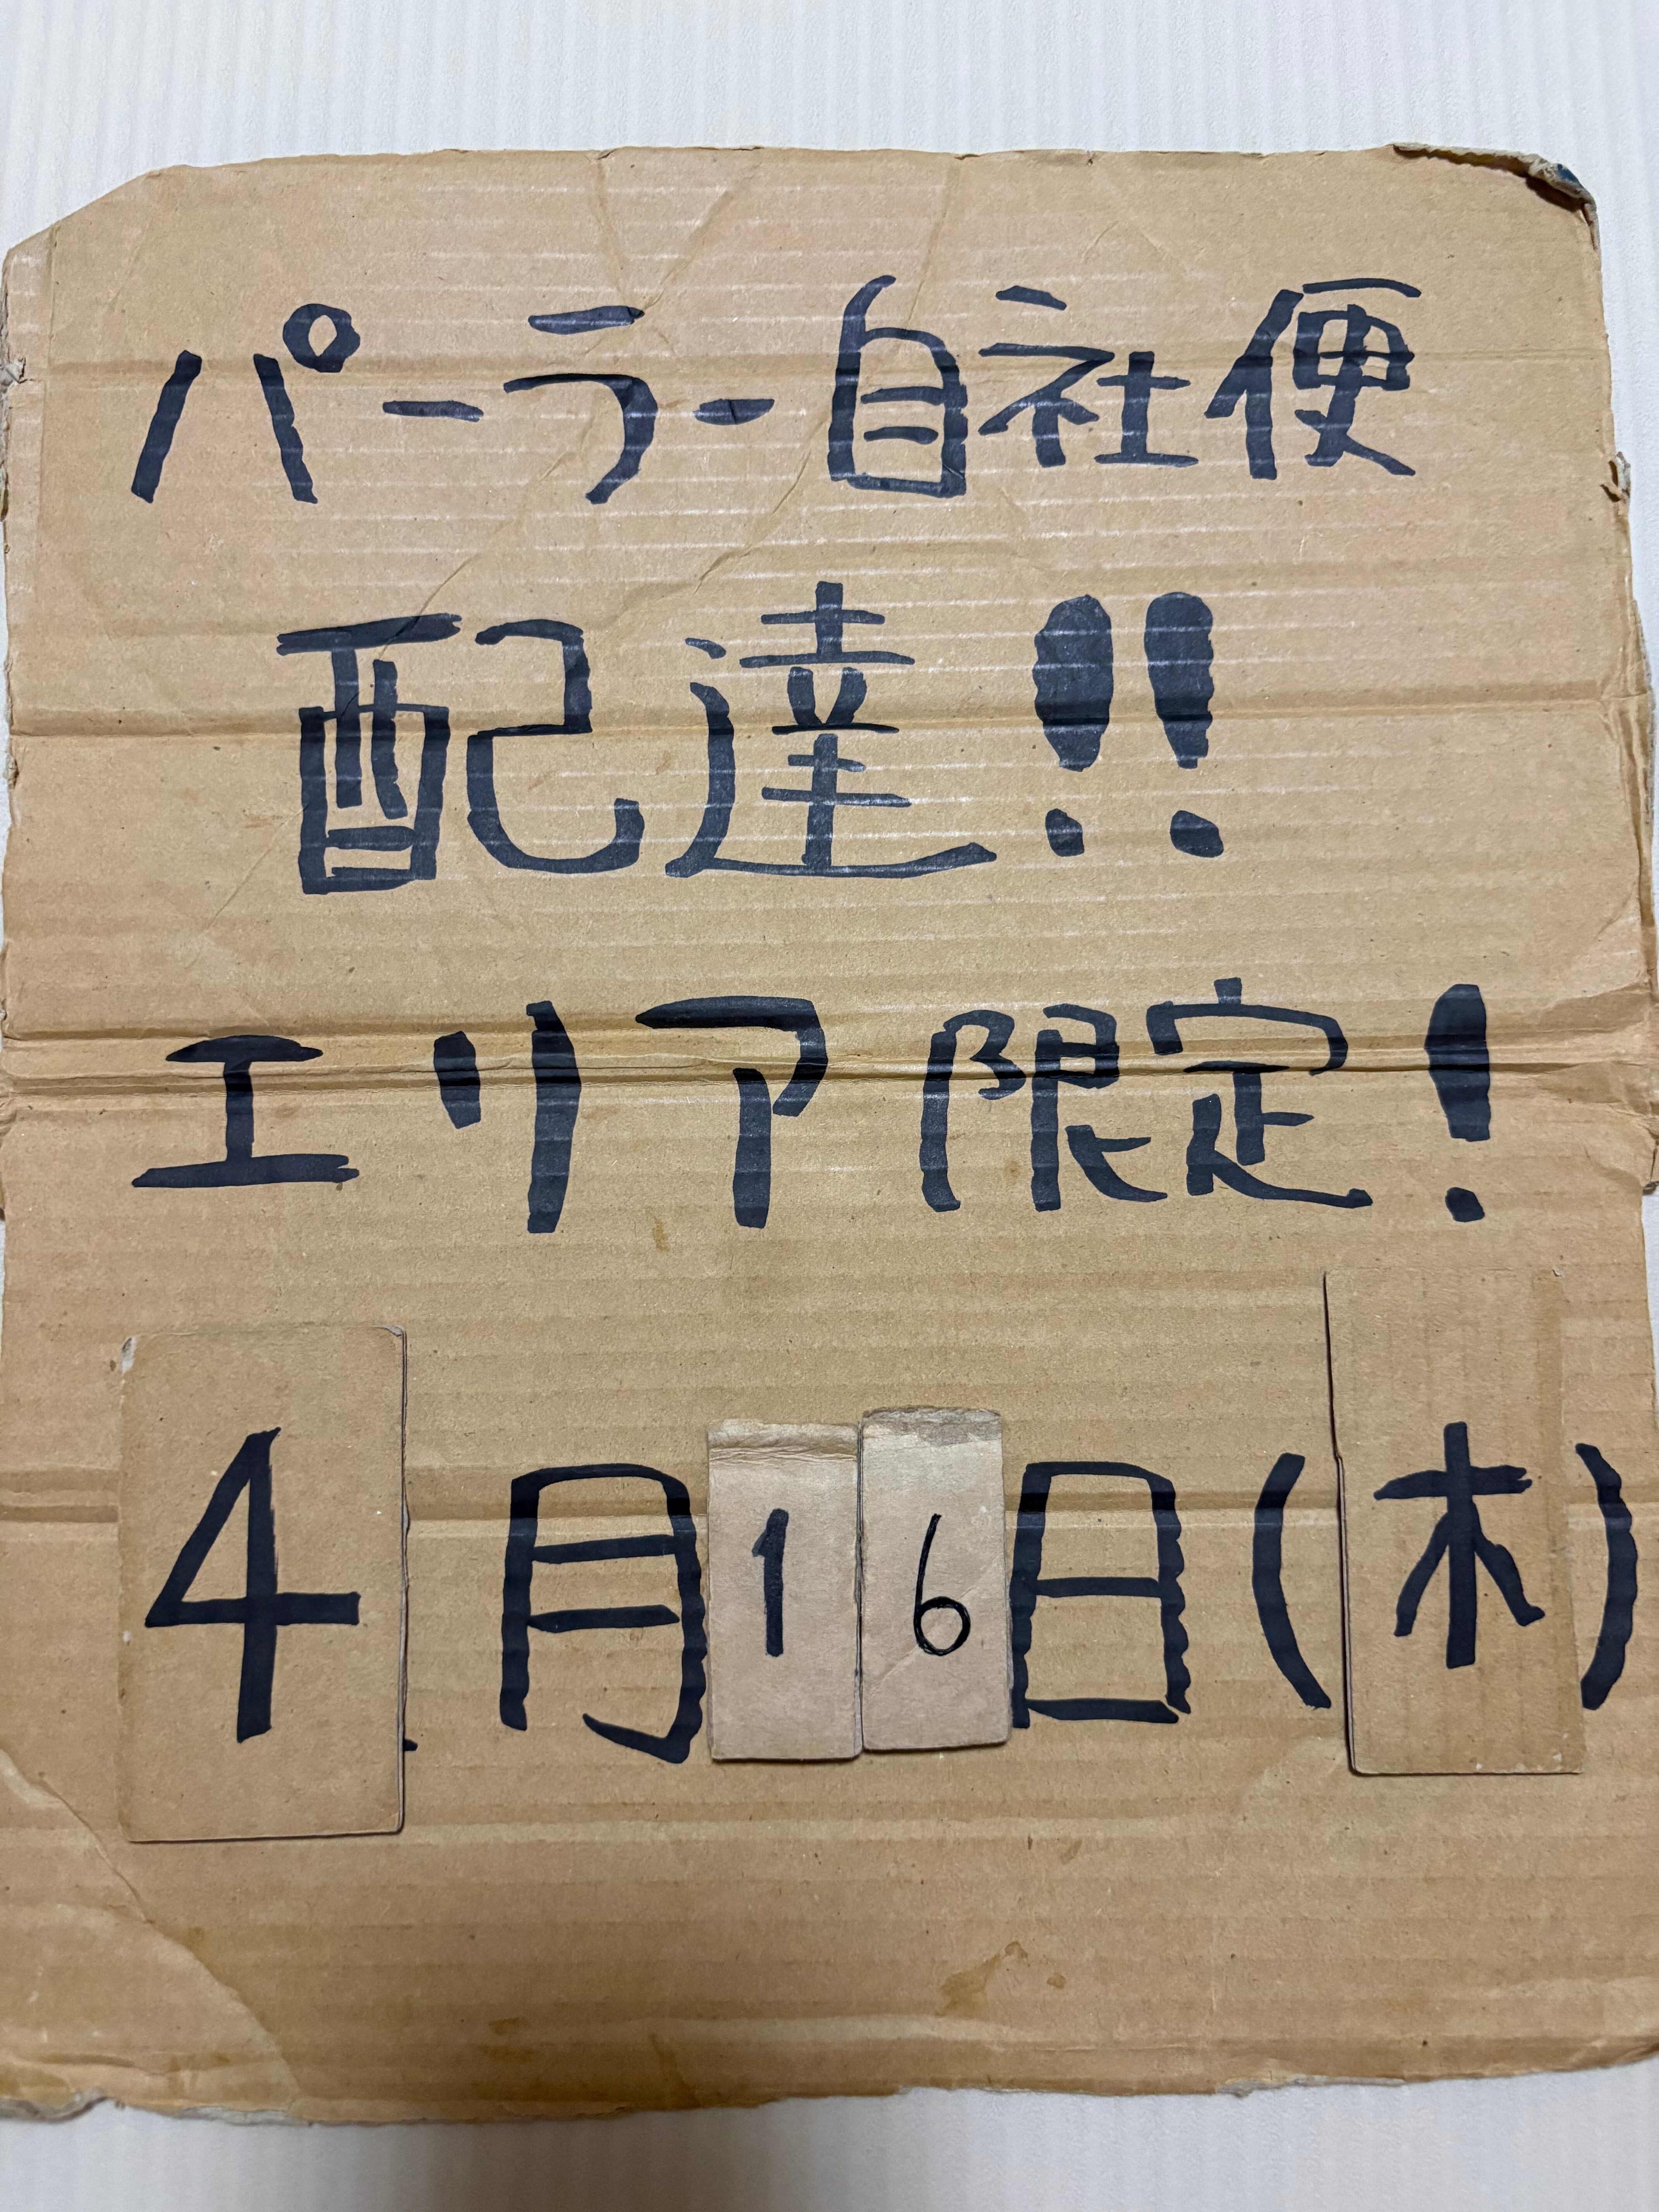 パーラー自社便
配達!!
エリア限定!
4月16日(木)